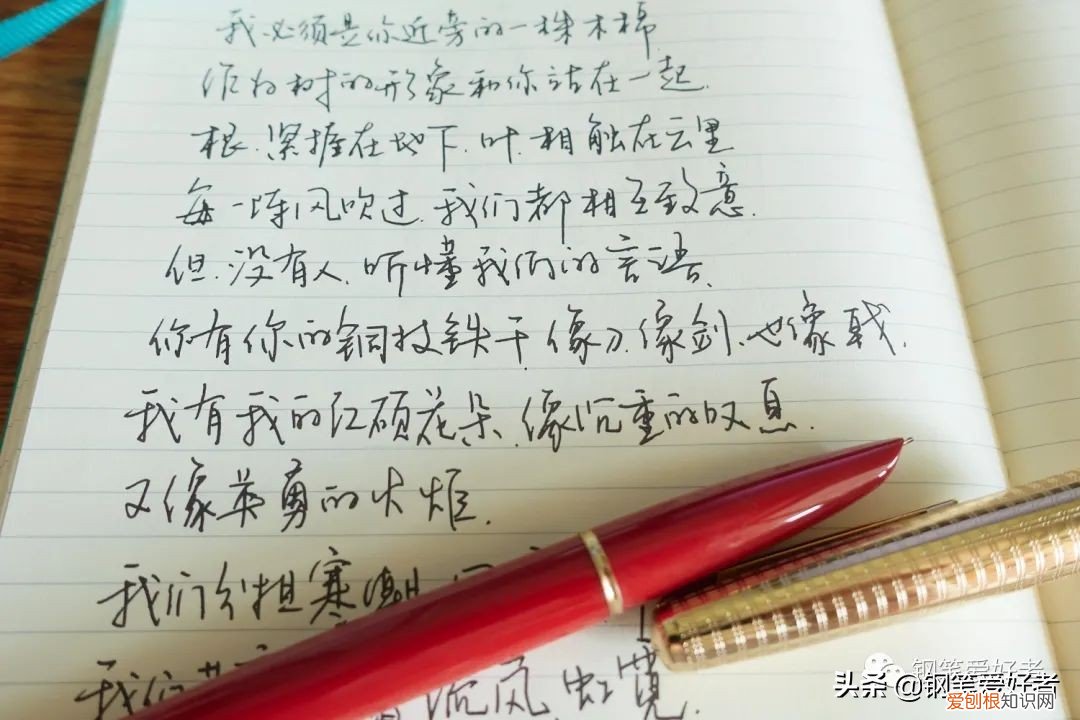 我必须是你近旁的一株木棉
作为树的形象和你站在一起.
根.紧握在地下.叶.相触在云里
每一阵风吹过.我们都相互致意.
但.没有人.听懂我们的言语.
你有你的铜枝铁干.像刀.像剑.也像戟.
我有我的红硕花朵.像沉重的叹息.
又像英勇的火炬.
我们分担寒潮
我们 虹霓.
钢笔爱好者
头条 @钢笔爱好者
爱刨根知识网